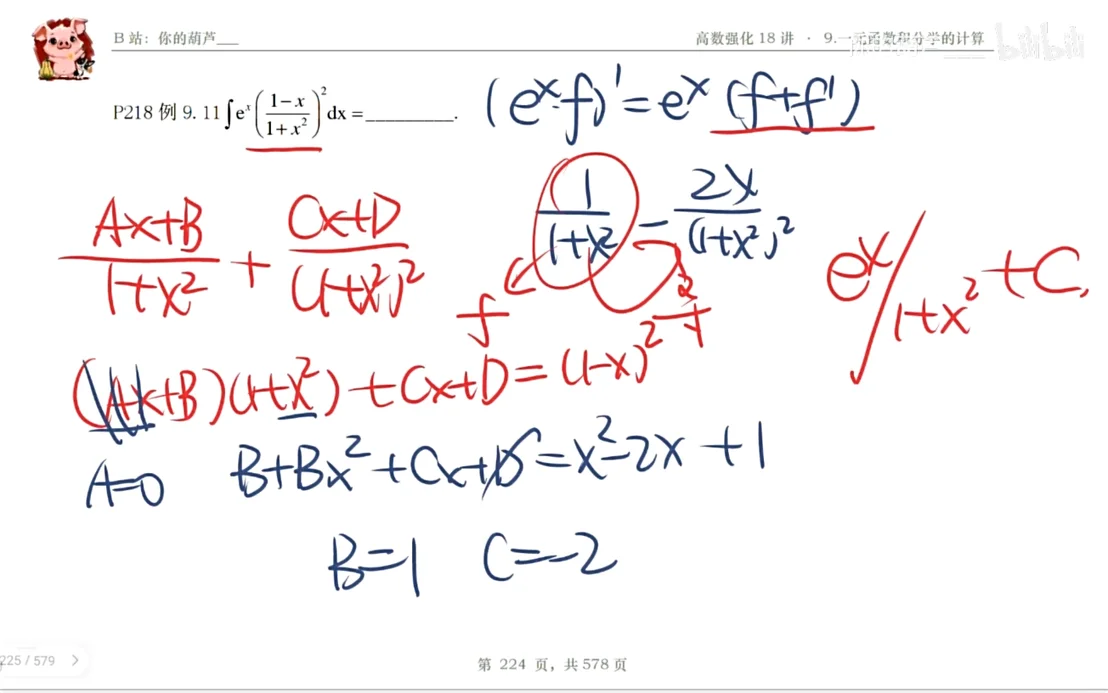 B 站：你的葫芦___
高数强化 18 讲 · 9.一元函数积分学的计算
bilibili
P218 例 9. 11 ∫eˣ((1−x)/(1+x²))²dx =_________.
(eˣ·f)' = eˣ (f+f')
(Ax+B)/(1+x²) + (Cx+D)/(1+x²)²
1/(1+x²) − 2x/(1+x²)²
f
eˣ/1+x² +C.
(Ax+B)(1+x²)+Cx+D=(1-x)²
A=0 B+Bx²+Cx+D=x²-2x+1
B=1 C=-2
225 / 579 >
第 224 页，共 578 页